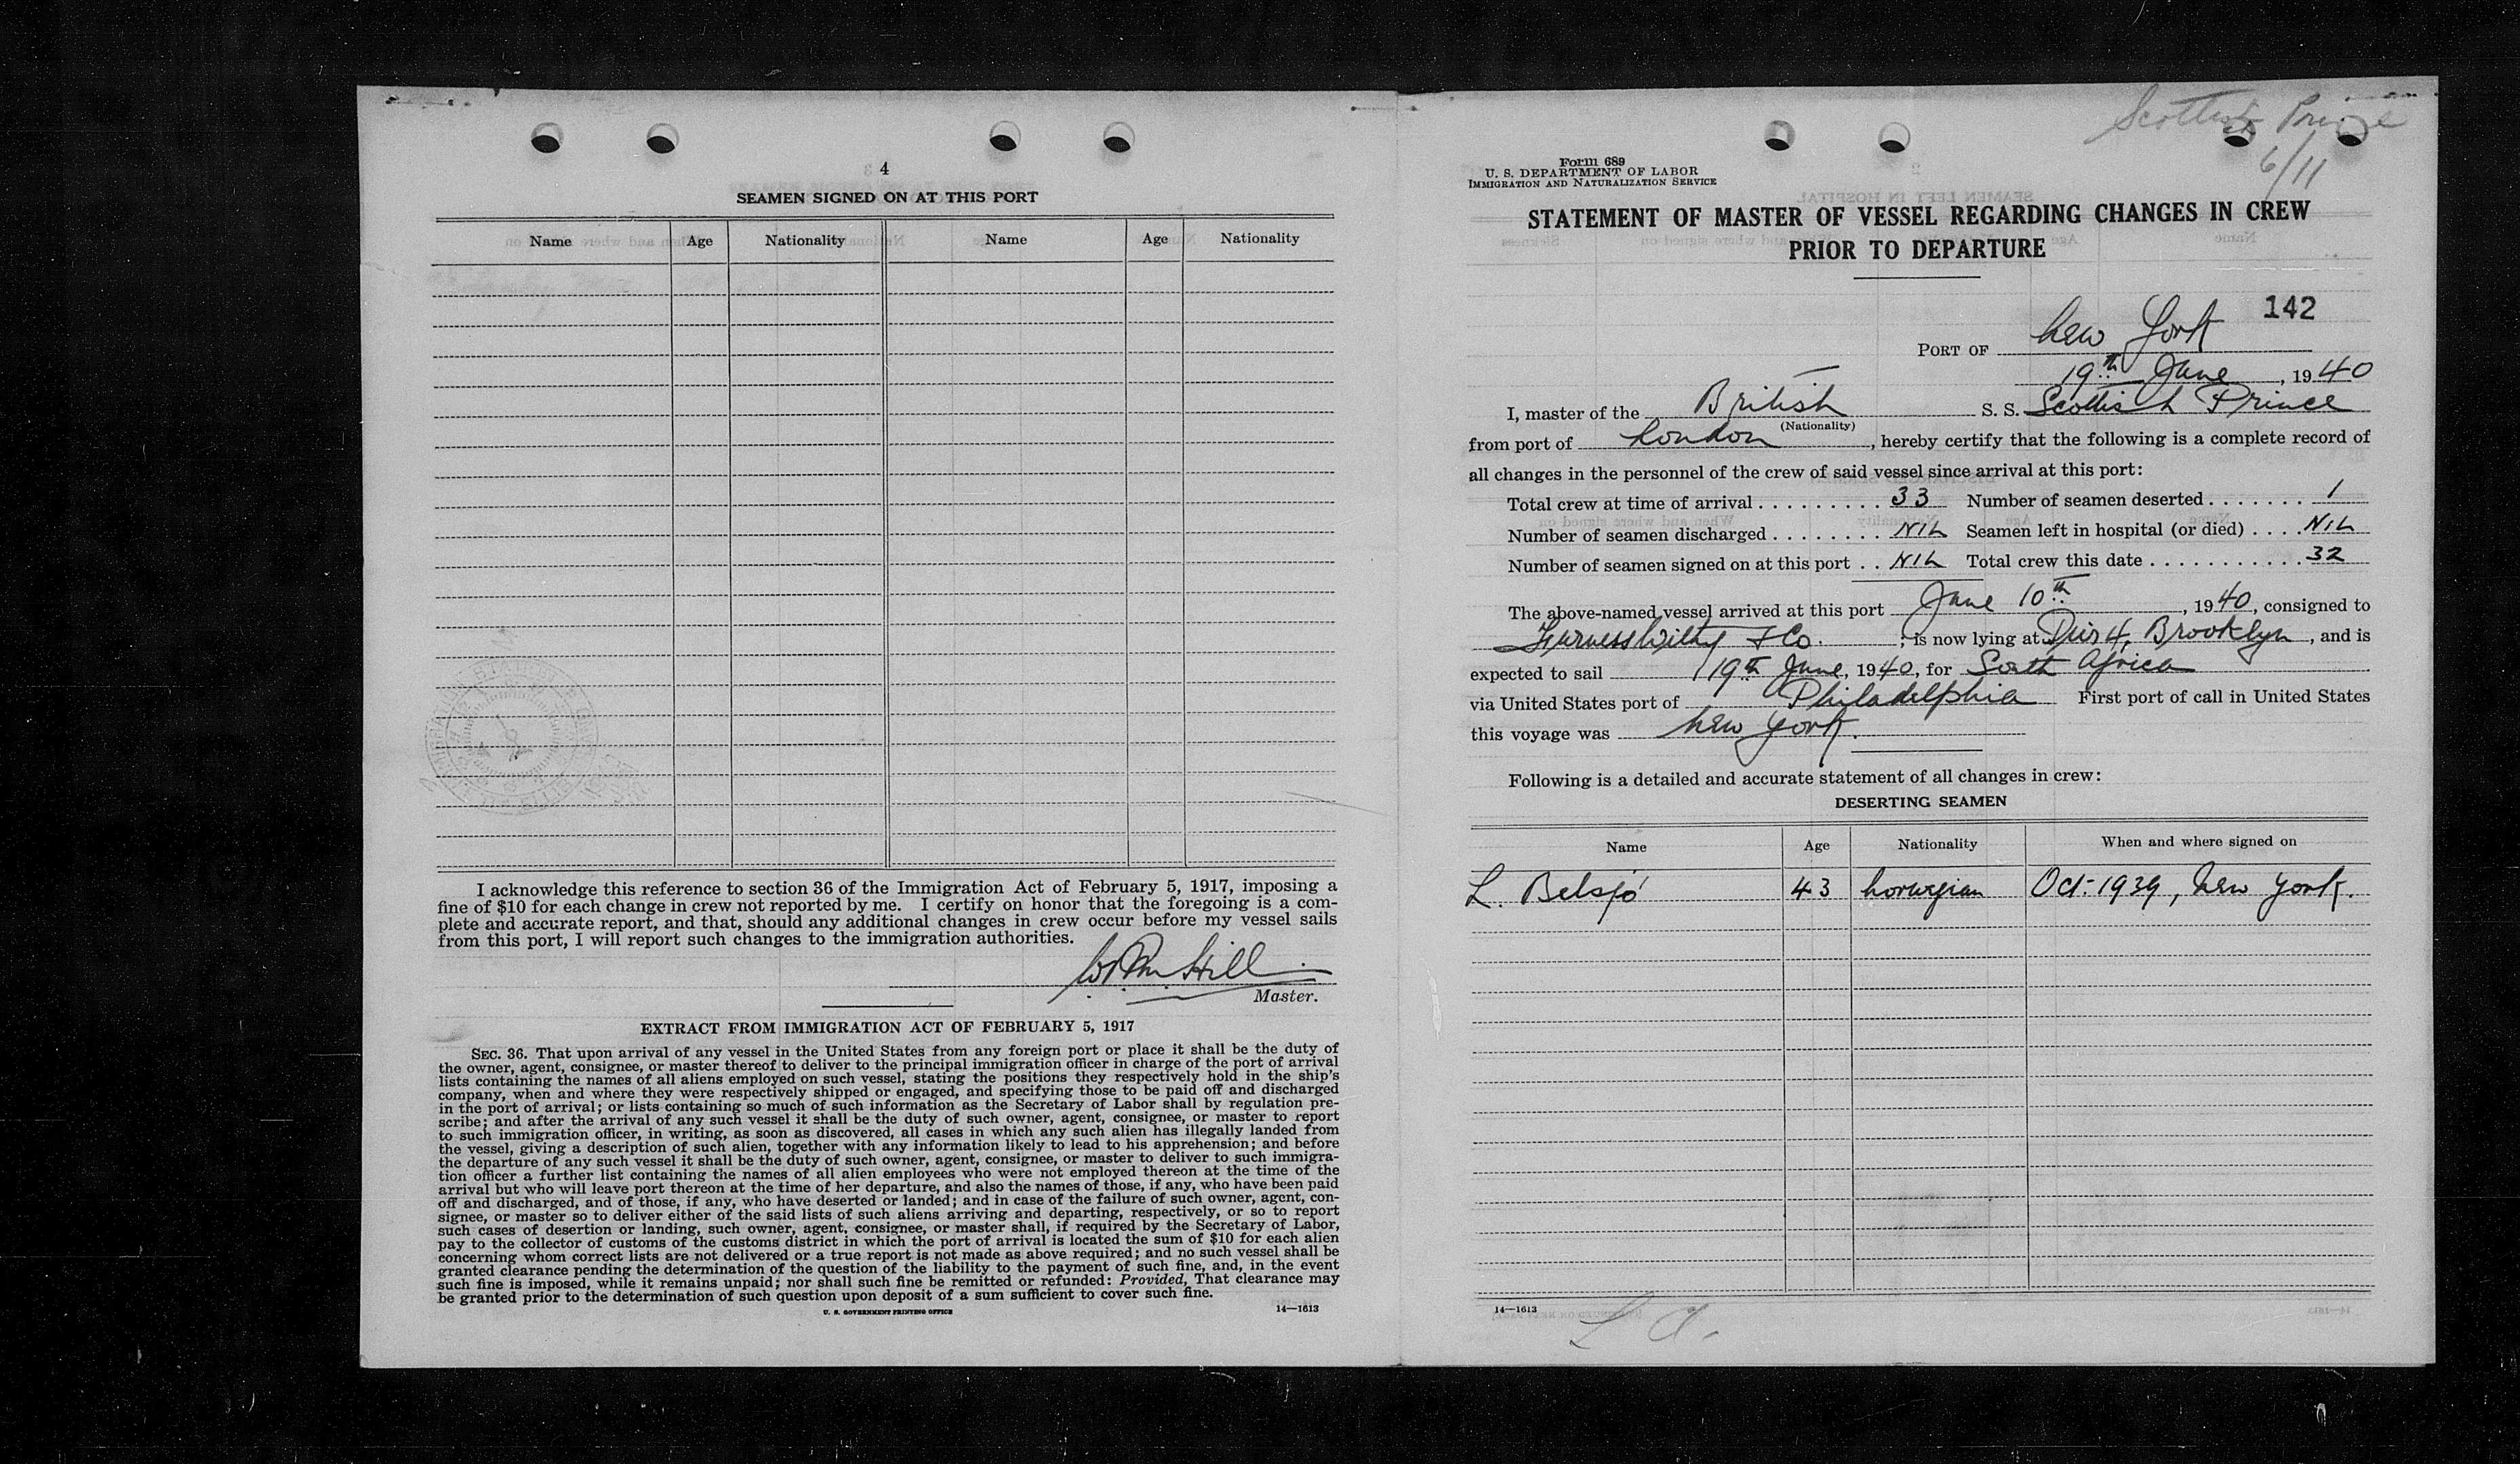 4
SEAMEN SIGNED ON AT THIS PORT
Name Age Nationality Name Age Nationality
I acknowledge this reference to section 36 of the Immigration Act of February 5, 1917, imposing a
fine of $10 for each change in crew not reported by me. I certify on honor that the foregoing is a com-
plete and accurate report, and that, should any additional changes in crew occur before my vessel sails
from this port, I will report such changes to the immigration authorities.
Hill
Master.
EXTRACT FROM IMMIGRATION ACT OF FEBRUARY 5, 1917
SEC. 36. That upon arrival of any vessel in the United States from any foreign port or place it shall be the duty of
the owner, agent, consignee, or master thereof to deliver to the principal immigration officer in charge of the port of arrival
lists containing the names of all aliens employed on such vessel, stating the positions they respectively hold in the ship's
company, when and where they were respectively shipped or engaged, and specifying those to be paid off and discharged
in the port of arrival; or lists containing so much of such information as the Secretary of Labor shall by regulation pre-
scribe; and after the arrival of any such vessel it shall be the duty of such owner, agent, consignee, or master to report
to such immigration officer, in writing, as soon as discovered, all cases in which any such alien has illegally landed from
the vessel, giving a description of such alien, together with any information likely to lead to his apprehension; and before
the departure of any such vessel it shall be the duty of such owner, agent, consignee, or master to deliver to such immigra-
tion officer a further list containing the names of all alien employees who were not employed thereon at the time of the
arrival but who will leave port thereon at the time of her departure, and also the names of those, if any, who have been paid
off and discharged, and of those, if any, who have deserted or landed; and in case of the failure of such owner, agent, con-
signee, or master so to deliver either of the said lists of such aliens arriving and departing, respectively, or so to report
such cases of desertion or landing, such owner, agent, consignee, or master shall, if required by the Secretary of Labor,
pay to the collector of customs of the customs district in which the port of arrival is located the sum of $10 for each alien
concerning whom correct lists are not delivered or a true report is not made as above required; and no such vessel shall be
granted clearance pending the determination of the question of the liability to the payment of such fine, and, in the event
such fine is imposed, while it remains unpaid; nor shall such fine be remitted or refunded: Provided, That clearance may
be granted prior to the determination of such question upon deposit of a sum sufficient to cover such fine.
U. S. GOVERNMENT PRINTING OFFICE 14—1613
Scottish Prince
6/11
Form 689
U. S. DEPARTMENT OF LABOR
IMMIGRATION AND NATURALIZATION SERVICE
STATEMENT OF MASTER OF VESSEL REGARDING CHANGES IN CREW
PRIOR TO DEPARTURE
142
PORT OF New York
19th June, 1940
I, master of the British S. S. Scottish Prince
(Nationality)
from port of London, hereby certify that the following is a complete record of
all changes in the personnel of the crew of said vessel since arrival at this port:
Total crew at time of arrival . . . . . . . . . 33 Number of seamen deserted . . . . . . . 1
Number of seamen discharged . . . . . . . . NIL Seamen left in hospital (or died) . . . . NIL
Number of seamen signed on at this port . . NIL Total crew this date . . . . . . . . . . . . 32
The above-named vessel arrived at this port June 10th, 1940, consigned to
Furness Withy & Co. ; is now lying at Pier 4, Brooklyn, and is
expected to sail 19th June, 1940, for South Africa
via United States port of Philadelphia First port of call in United States
this voyage was New York.
Following is a detailed and accurate statement of all changes in crew:
DESERTING SEAMEN
Name Age Nationality When and where signed on
L. Belsjö 43 Norwegian Oct. 1939, New York.
14—1613